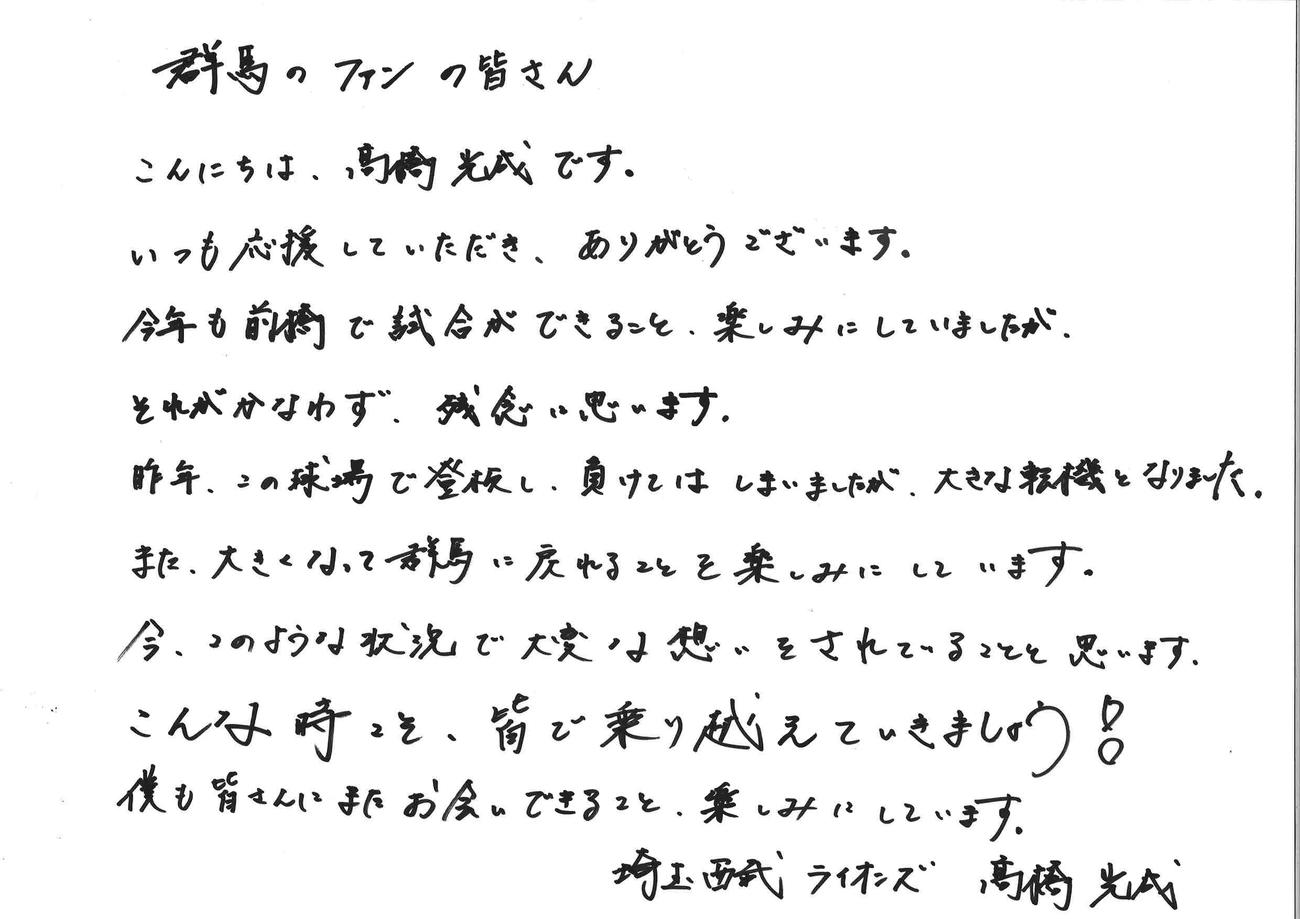 群馬のファンの皆さん
こんにちは、髙橋光成です。
いつも応援していただき、ありがとうございます。
今年も前橋で試合ができること、楽しみにしていましたが、
それがかなわず、残念に思います。
昨年、この球場で登板し、負けてはしまいましたが、大きな転機となりました。
また、大きくなって群馬に戻れることを楽しみにしています。
今、このような状況で大変な想いをされていることと思います。
こんな時こそ、皆で乗り越えていきましょう!
僕も皆さんにまたお会いできること、楽しみにしています。
埼玉西武ライオンズ 髙橋光成